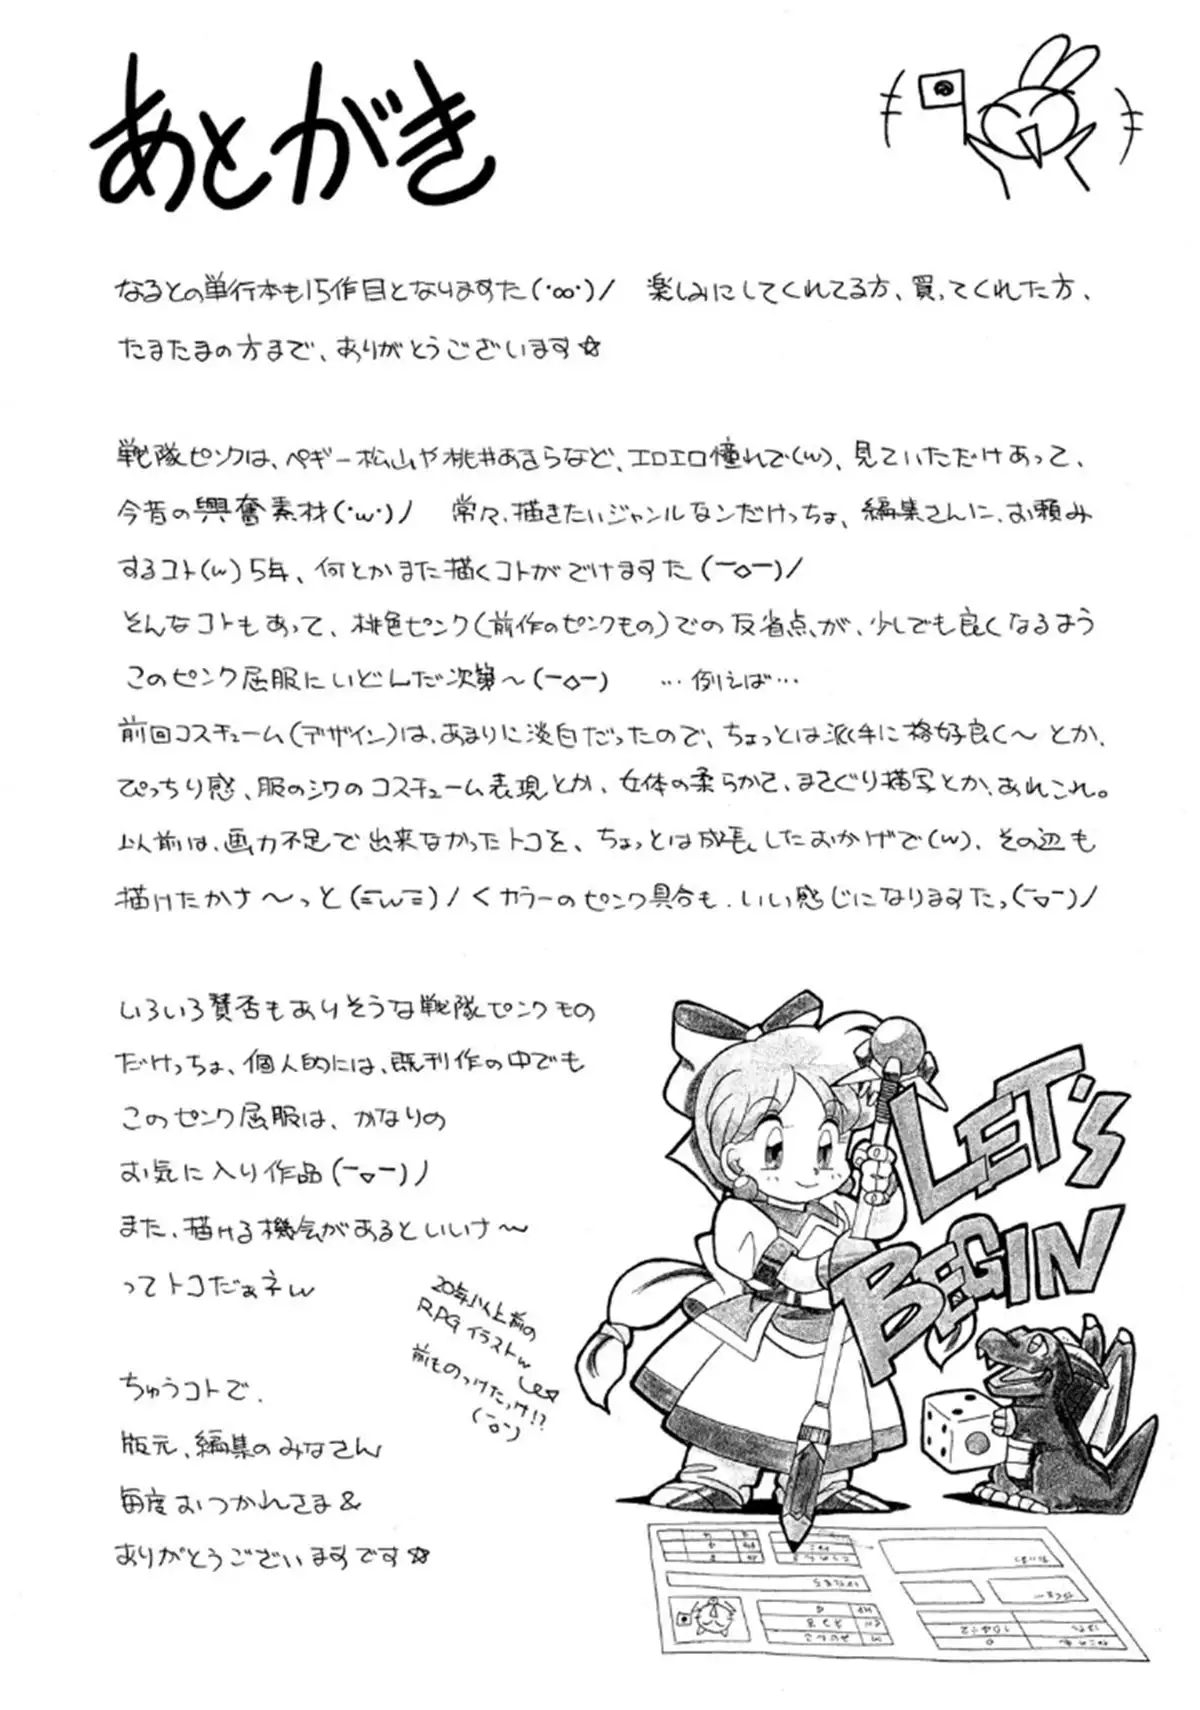 あとがき
なるとの単行本も15作目となりますた(･∞･)ノ 楽しみにしてくれてる方、買ってくれた方、
たまたまの方まで、ありがとうございます☆
戦隊ピンクは、ペギー松山や桃井あきらなど、エロエロ憧れで(w)、見ていただけあって、
今昔の興奮素材(･w･)ノ 常々、描きたいジャンルなンだけっちょ、編集さんに、お頼み
するコト(w)5年、何とかまた描くコトがでけますた(￣◇￣)ノ
そんなコトもあって、桃色ピンク(前作のピンクもの)での反省点が、少しでも良くなるよう
このピンク屈服にいどんだ次第～(￣◇￣) …例えば…
前回コスチューム(デザイン)は、あまりに淡白だったので、ちょっとは派手に格好良く～とか、
ぴっちり感、服のシワのコスチューム表現とか、女体の柔らかさ、まさぐり描写とか、あれこれ。
以前は、画力不足で出来なかったトコを、ちょっとは成長したおかげで(w)、その辺も
描けたかナ～っと(ΞwΞ)ノくカラーのピンク具合も、いい感じになりますたっ(￣▽￣)ノ
いろいろ賛否もありそうな戦隊ピンクもの
だけっちょ、個人的には、既刊作の中でも
このピンク屈服は、かなりの
お気に入り作品(￣▽￣)ノ
また、描ける機会があるといいナ～
ってトコだぁネw
20年以上前の
RPGイラストw
前ものっけたっけ!?
(￣◇￣)
ちゅうコトで、
版元、編集のみなさん
毎度おつかれさま&
ありがとうございますです☆
LET'S
BEGIN